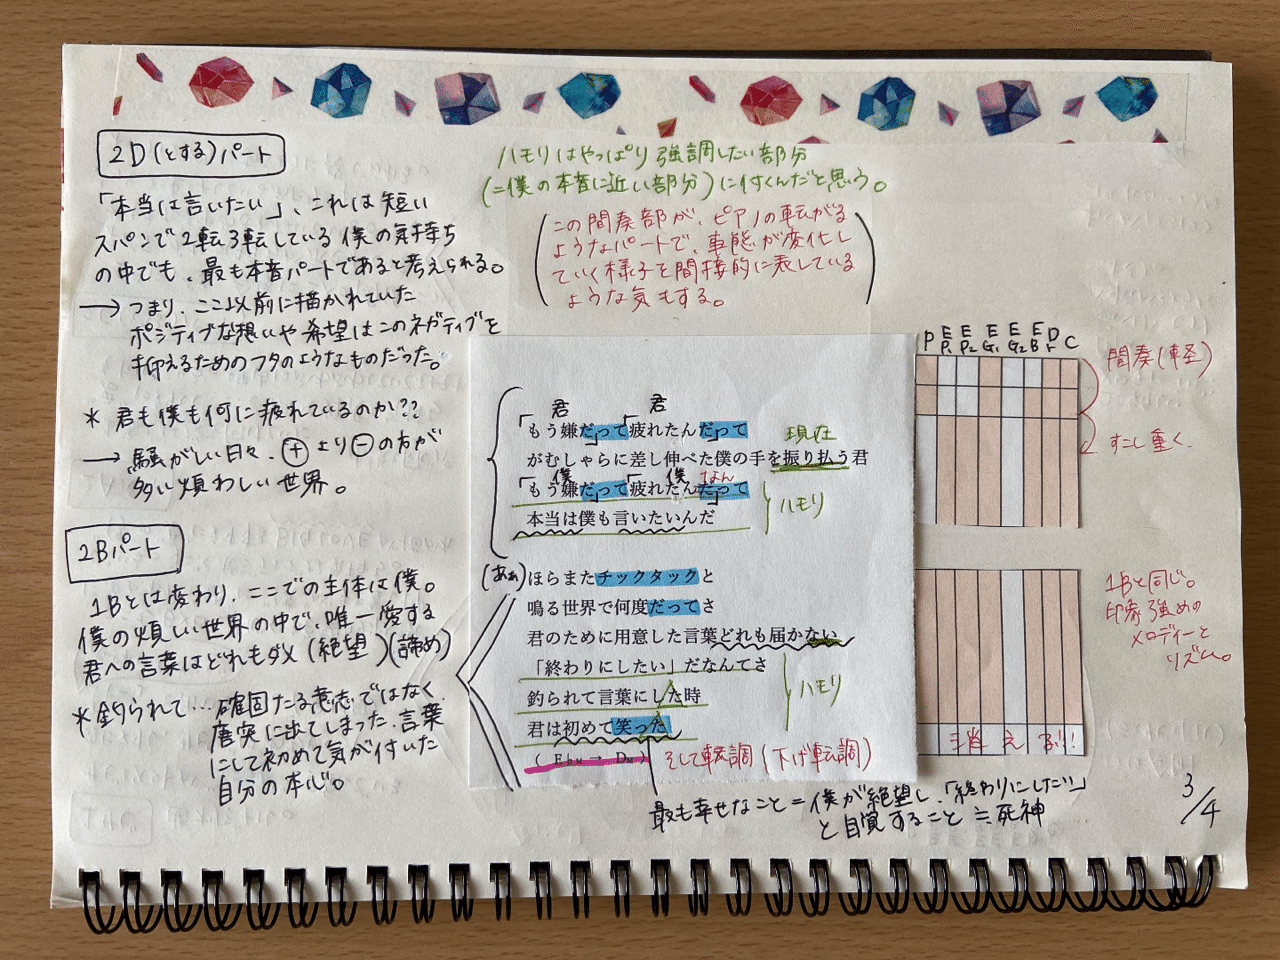 2D(とする)パート
「本当は言いたい」、これは短い
スパンで2転3転している僕の気持ち
の中でも、最も本音パートであると考えられる。
→つまり、ここ以前に描かれていた
ポジティブな想いや希望はこのネガティブを
抑えるためのフタのようなものだった。
* 君も僕も何に疲れているのか??
→騒がしい日々、⊕より⊖の方が
多い煩わしい世界。
2Bパート
1Bとは変わり、ここでの主体は僕。
僕の煩しい世界の中で、唯一愛する
君への言葉はどれもダメ(絶望)(諦め)
*釣られて…確固たる意志ではなく、
唐突に出てしまった、言葉
にして初めて気が付いた
自分の本心。
ハモリはやっぱり強調したい部分
(=僕の本音に近い部分)に付くんだと思う。
(この間奏部が、ピアノの転がる
ようなパートで、事態が変化し
ていく様子を間接的に表している
ような気もする。)
君 君
「もう嫌だって」「疲れたんだって
現在
がむしゃらに差し伸べた僕の手を振り払う君
僕 僕 なん
「もう嫌だって」「疲れたんだって」
ハモリ
本当は僕も言いたいんだ
(ああ)ほらまたチックタックと
鳴る世界で何度だってさ
君のために用意した言葉どれも届かない
「終わりにしたい」だなんてさ
ハモリ
釣られて言葉にした時
君は初めて笑った
(E♭M → DM) そして転調(下げ転調)
最も幸せなこと=僕が絶望し、「終わりにしたい」
と自覚すること≒死神
P EP1 EP2 EG1 EG2 EB Dr C
間奏(軽)
すこし重く、
1Bと同じ。
印象強めの
メロディーと
リズム。
消える!!
3/4